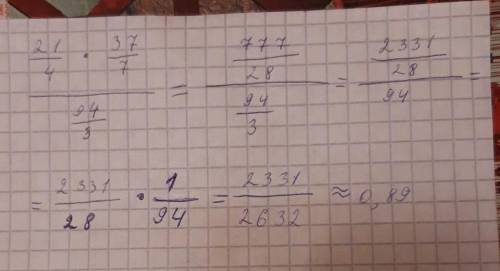 21/4 · 37/7 / 94/3 = 777/28 / 94/3 = 2331/28 / 94 =
= 2331/28 · 1/94 = 2331/2632 ≈ 0,89